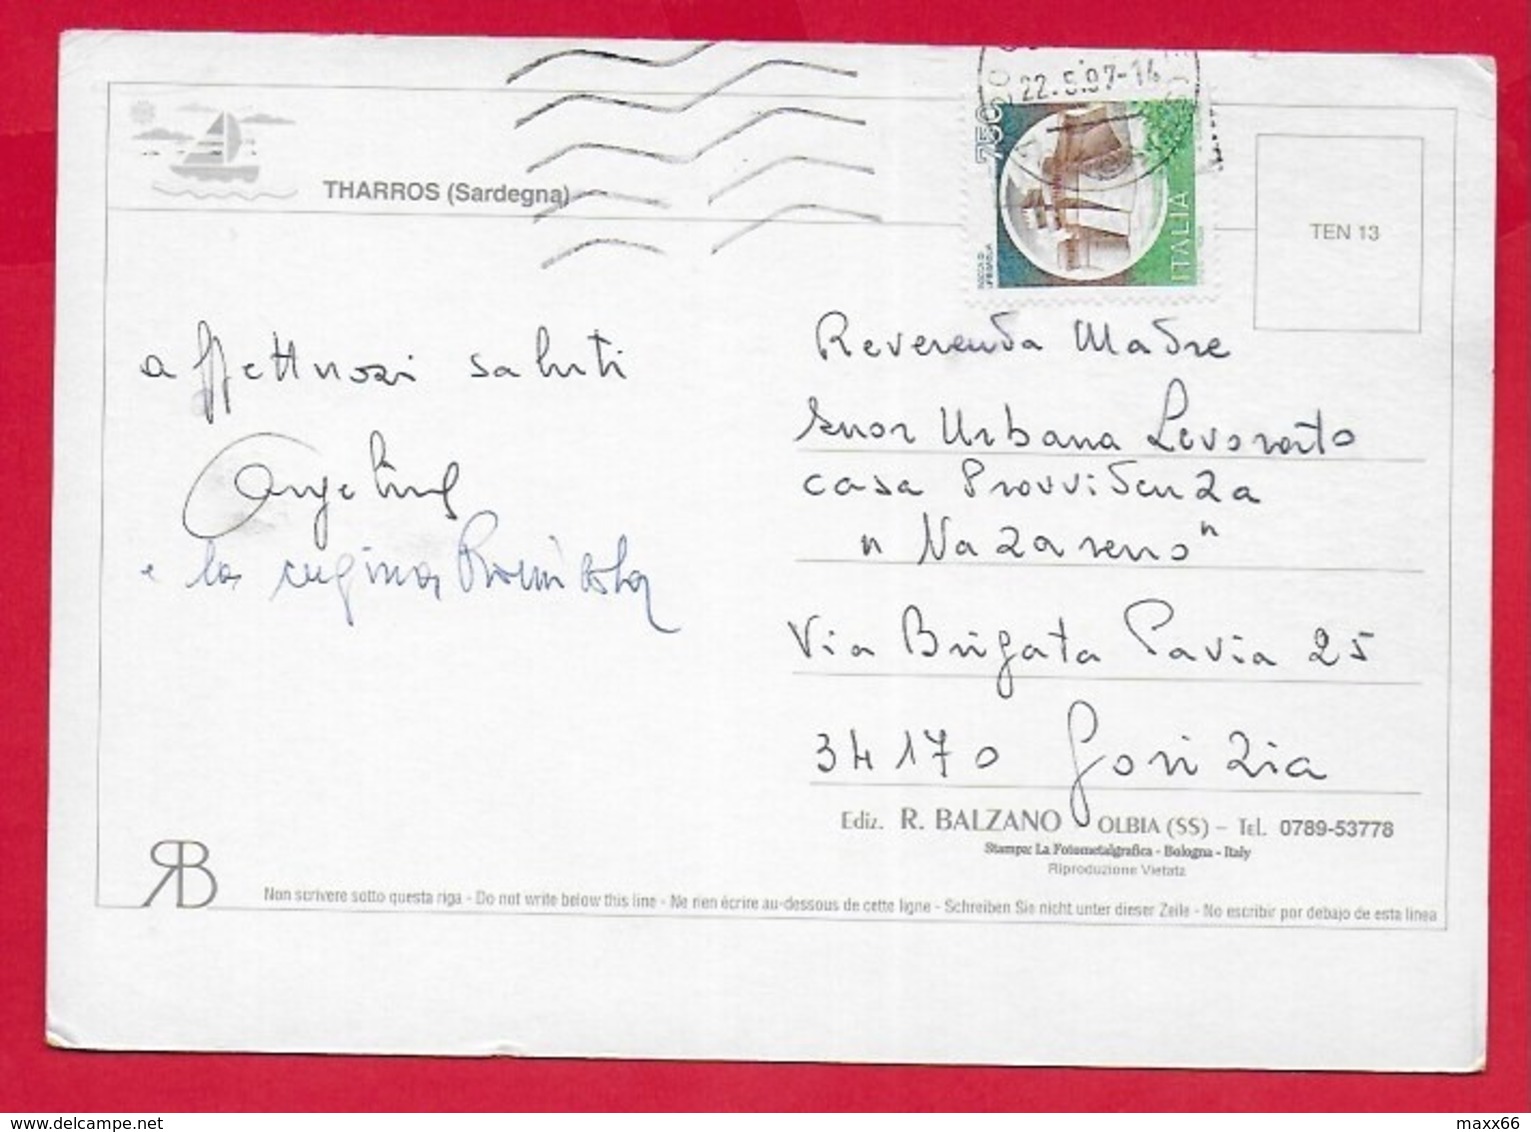 22.5.97-14
750
ITALIA
THARROS (Sardegna)
TEN 13
affettuosi saluti
Angelina
e la cugina
Reverenda Madre
Suor Urbana Levorato
casa Provvidenza
" Nazareno "
Via Brigata Pavia 25
34170 Gorizia
Ediz. R. BALZANO OLBIA (SS) – Tel. 0789-53778
Stampa: La Fotometalgrafica - Bologna - Italy
Riproduzione Vietata
RB
Non scrivere sotto questa riga - Do not write below this line - Ne rien écrire au-dessous de cette ligne - Schreiben Sie nicht unter dieser Zeile - No escribir por debajo de esta linea
maxx66